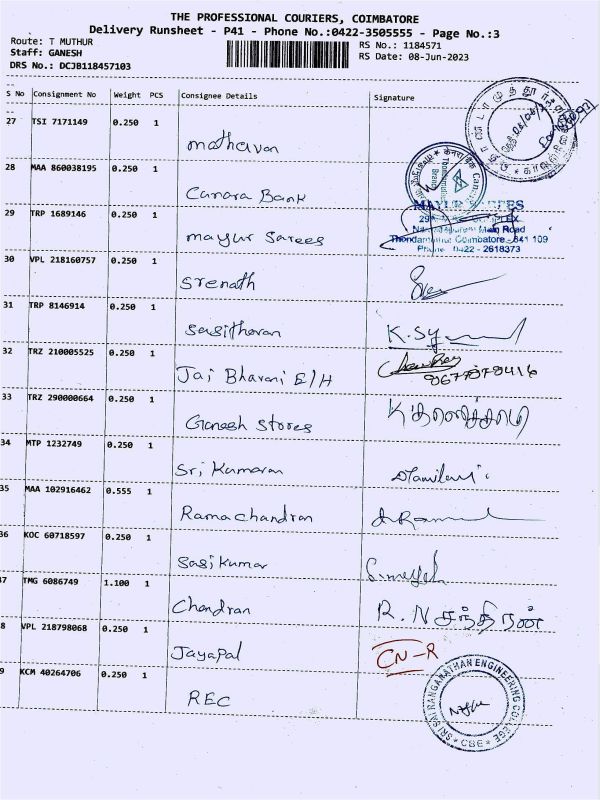 THE PROFESSIONAL COURIERS, COIMBATORE
Delivery Runsheet - P41 - Phone No.:0422-3505555 - Page No.:3
Route: T MUTHUR
RS No.: 1184571
Staff: GANESH
RS Date: 08-Jun-2023
DRS No.: DCJB118457103
S No Consignment No Weight PCS Consignee Details Signature
27 TSI 7171149 0.250 1 mathavan
28 MAA 860038195 0.250 1 Canara Bank
29 TRP 1689146 0.250 1 mayur sarees
MAYUR
Main Road
Thondamuthur Coimbatore - 641 109
Phone 0422 - 2618373
30 VPL 218160757 0.250 1 Srenath
31 TRP 8146914 0.250 1 Sasitharan
32 TRZ 210005525 0.250 1 Jai Bhavani E/H
33 TRZ 290000664 0.250 1 Ganesh stores
34 MTP 1232749 0.250 1 Sri Kumaran
35 MAA 102916462 0.555 1 Ramachandran
36 KOC 60718597 0.250 1 Sasikumar
37 TMG 6086749 1.100 1 Chandran R. N சந்திரன்
8 VPL 218798068 0.250 1 Jayapal CN-R
9 KCM 40264706 0.250 1 REC
SRI SAI RANGANATHAN ENGINEERING COLLEGE
★ CBE ★